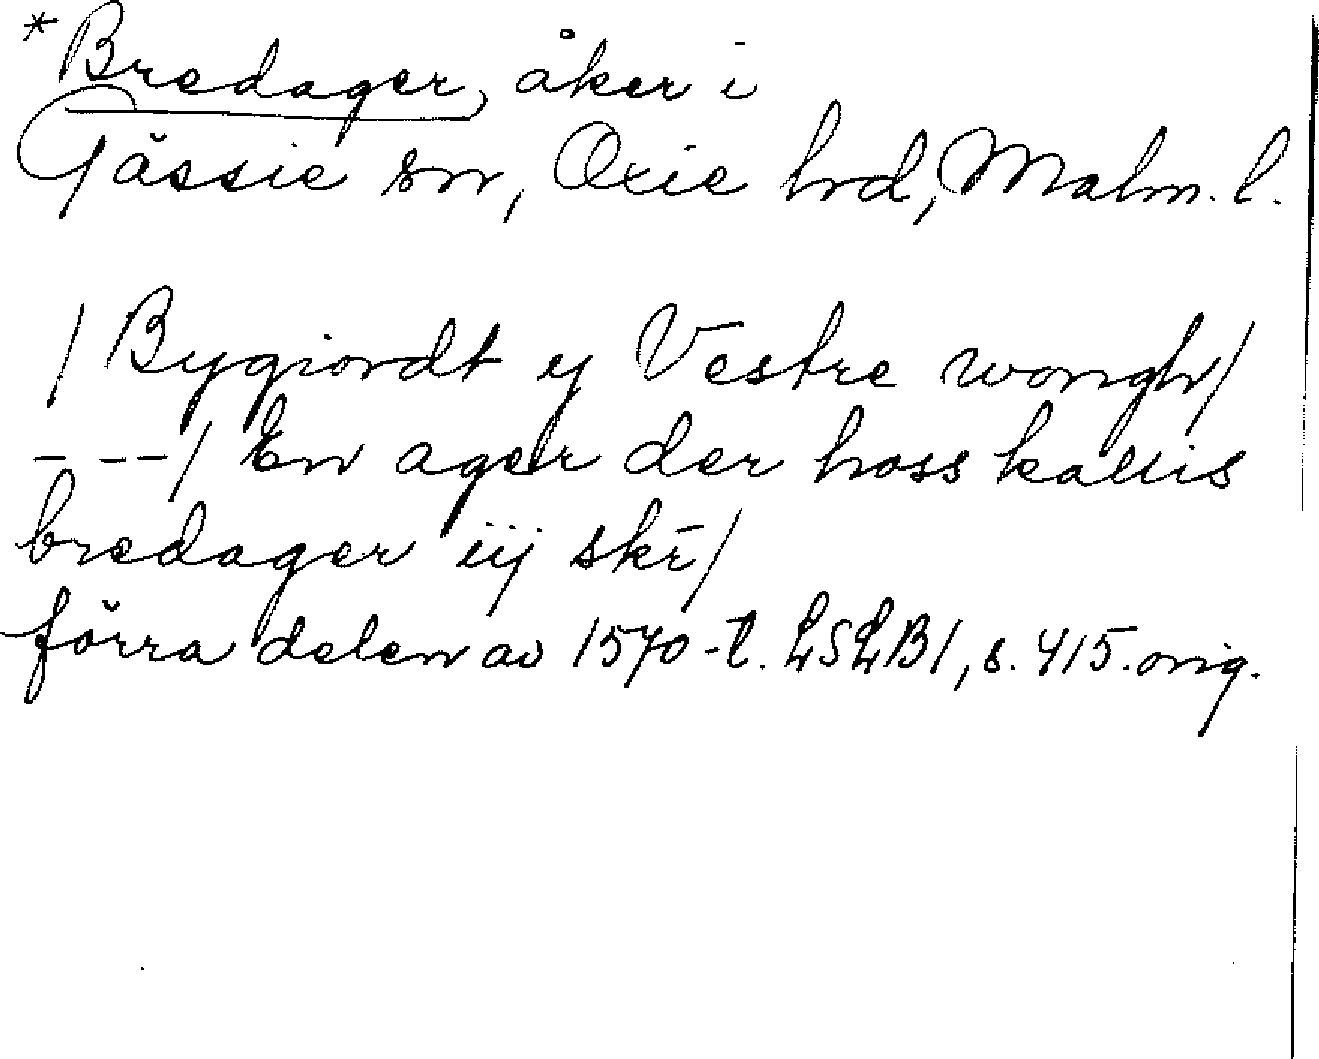 *Bredager, åker i
Gässie sn, Oxie hrd, Malm. l.
/ Bygiordt ij Vestre wongh/
- - -/ En ager der hoss kallis
bredager iij skr̄/
förra delen av 1570-t. LSLB1, s. 415. orig.